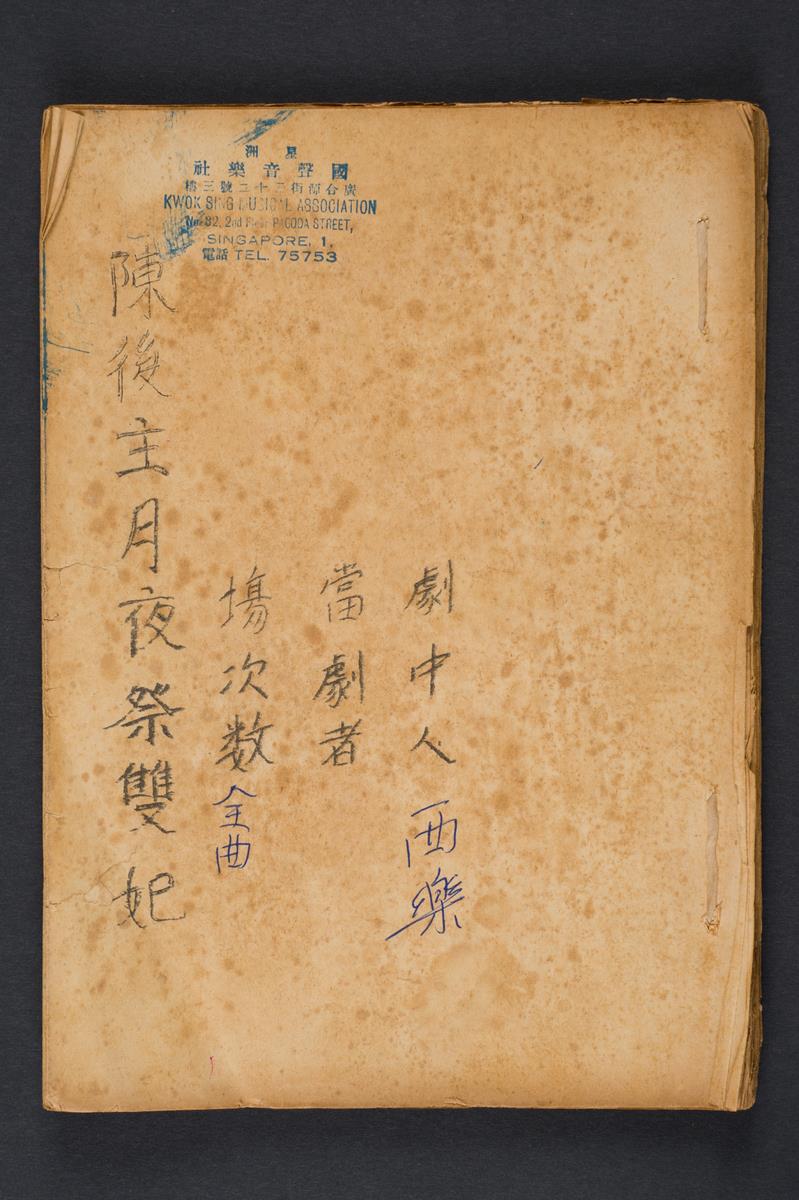 星洲
國聲音樂社
廣合源街三十二號三樓
KWOK SING MUSICAL ASSOCIATION
No. 32, 2nd Floor PAGODA STREET,
SINGAPORE, 1,
電話 TEL. 75753
劇中人 西樂
當劇者
場次数 全曲
陳後主月夜祭雙妃